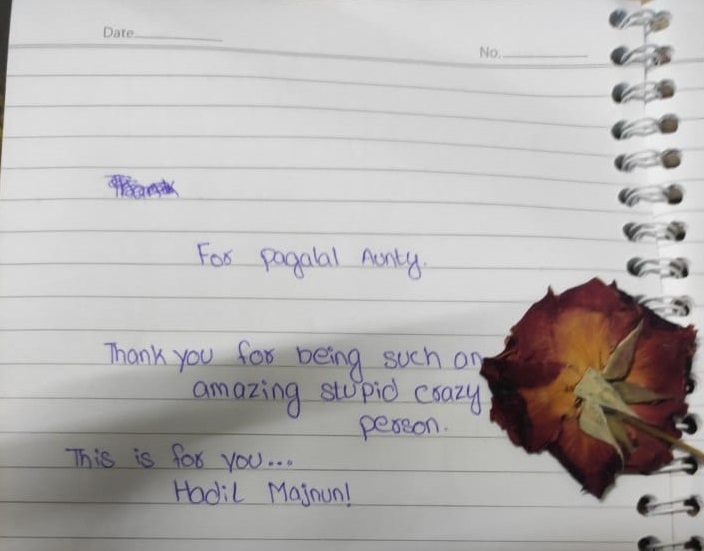 Date
No.
For pagalal Aunty.
Thank you for being such an
amazing stupid crazy
person.
This is for you...
Hadil Majnun!